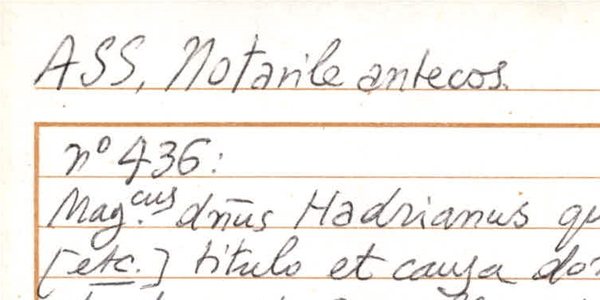 ASS, Notarile antecos.
nº 436:
Mag.cus dn̄us Hadrianus qu
[etc.] titulo et causa do